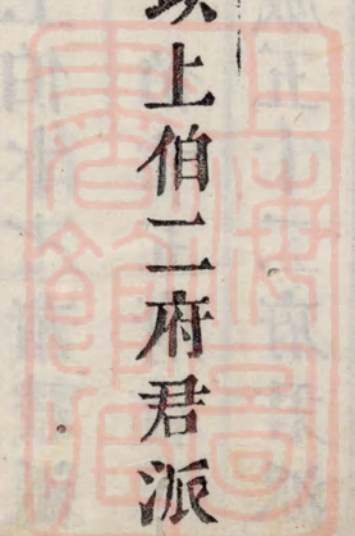 以上伯二府君派